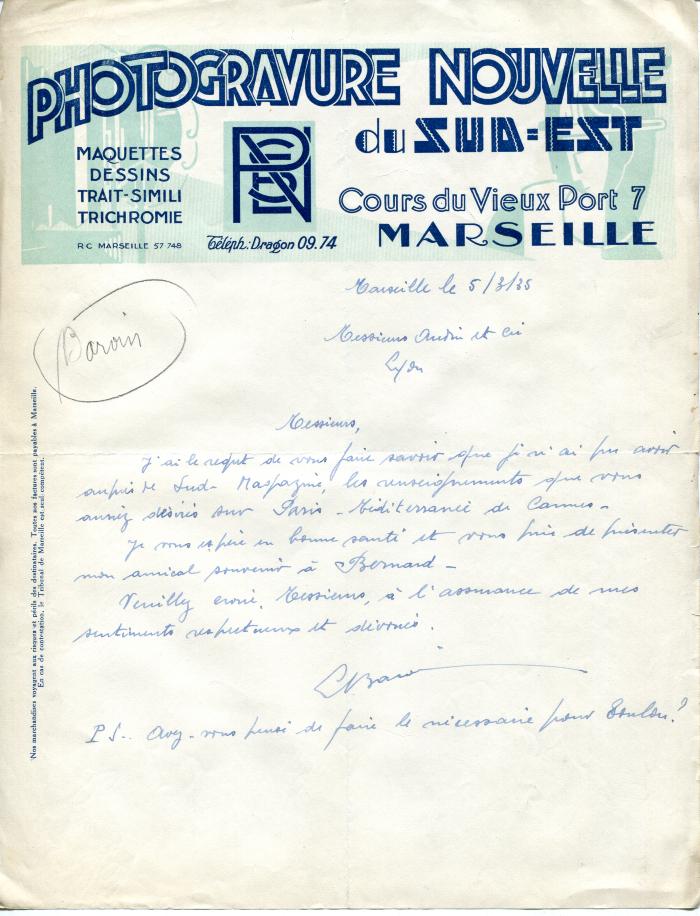 PHOTOGRAVURE NOUVELLE
du SUD-EST
MAQUETTES
DESSINS
TRAIT-SIMILI
TRICHROMIE
R C MARSEILLE 57-748
Téléph.: Dragon 09.74
Cours du Vieux Port 7
MARSEILLE
Marseille le 5/3/35
Messieurs Audin et Cie
Lyon
Baroin
Messieurs,
J'ai le regret de vous faire savoir que je n'ai pu avoir
auprès de Sud-Magazine, les renseignements que vous
auriez désirés sur Paris-Méditerranée de Cannes-
Je vous espère en bonne santé et vous prie de présenter
mon amical souvenir à Bernard-
Veuillez croire, Messieurs, à l'assurance de mes
sentiments respectueux et dévoués.
PS-. Avez-vous pensé de faire le nécessaire pour Toulon?
Nos marchandises voyagent aux risques et périls des destinataires. Toutes nos factures sont payables à Marseille.
En cas de contestation, le Tribunal de Marseille est seul compétent.